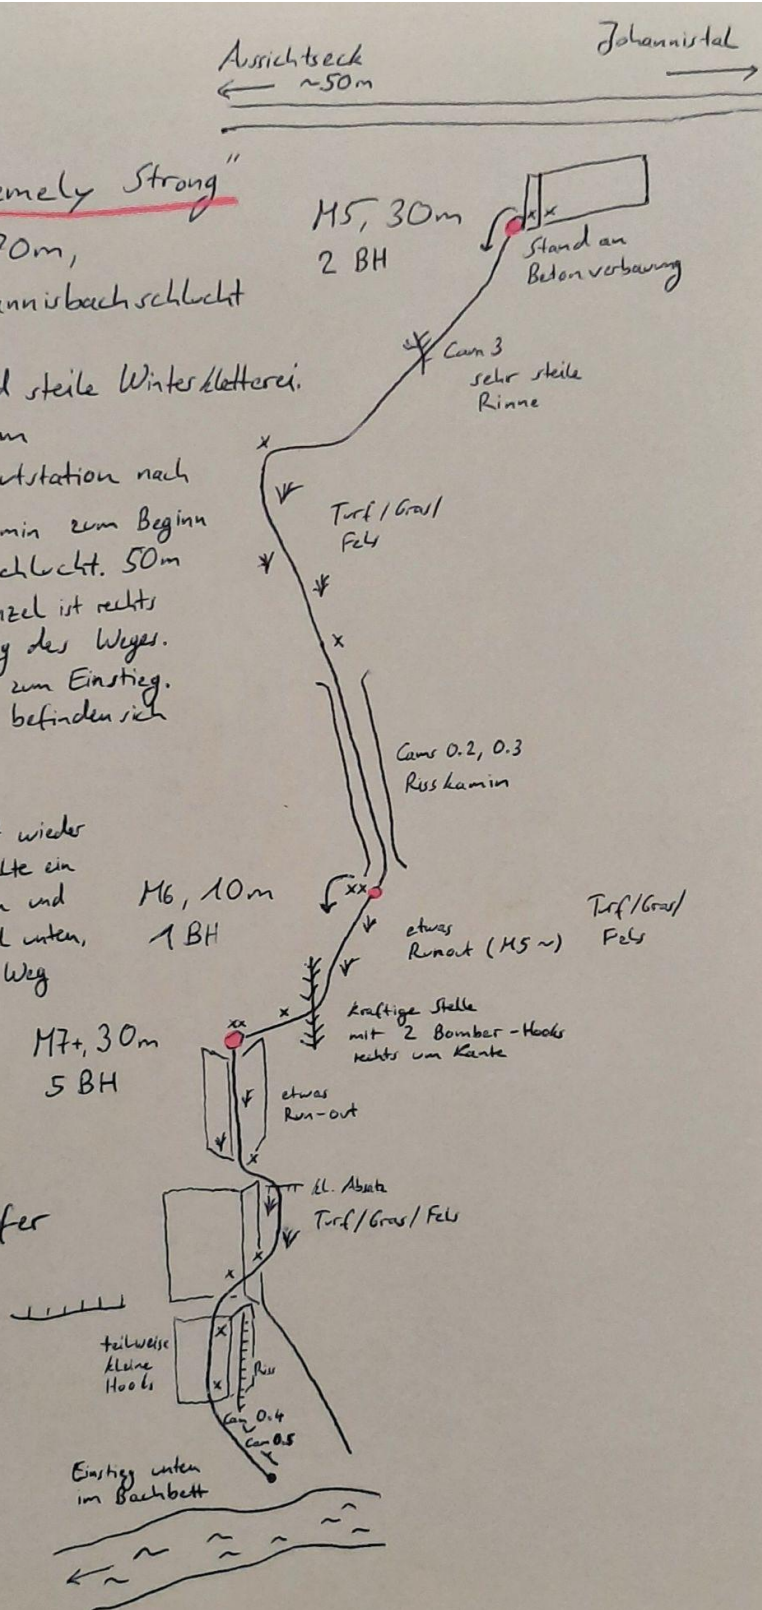 Aussichtseck
~50m
Johannistal
emely Strong"
70m,
nnisbachschlucht
steile Winterkletterei.
m
tstation nach
min zum Beginn
chlucht. 50m
nzel ist rechts
g des Weges.
zum Einstieg.
befinden sich
wieder
lte ein
und
unten,
Weg
fer
M5, 30m
2 BH
Stand an
Betonverbauung
Cam 3
sehr steile
Rinne
Turf/Gras/
Fels
Cams 0.2, 0.3
Risskamin
M6, 10m
1 BH
etwas
Runout (M5~)
Turf/Gras/
Fels
kräftige Stelle
mit 2 Bomber-Hooks
rechts um Kante
M7+, 30m
5 BH
etwas
Run-out
kl. Absatz
Turf/Gras/Fels
teilweise
kleine
Hooks
Riss
Cam 0.4
Cam 0.5
Einstieg unten
im Bachbett